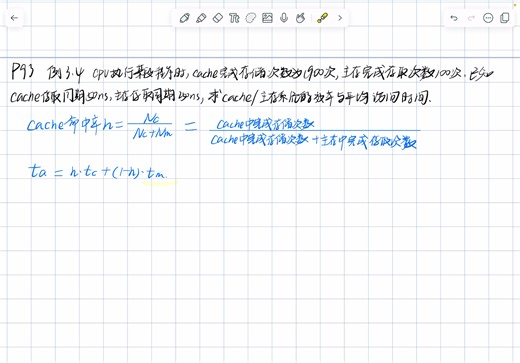 P93 例3.4 CPU执行某段程序时,cache完成存储次数为1900次,主存完成存取次数100次.已知
cache存取周期50ns,主存存取周期250ns,求cache/主存系统的效率与平均访问时间.
cache命中率h = Nc / (Nc+Nm) = cache中完成存储次数 / (cache中完成存储次数+主存中完成存取次数)
ta = h·tc+(1-h)·tm